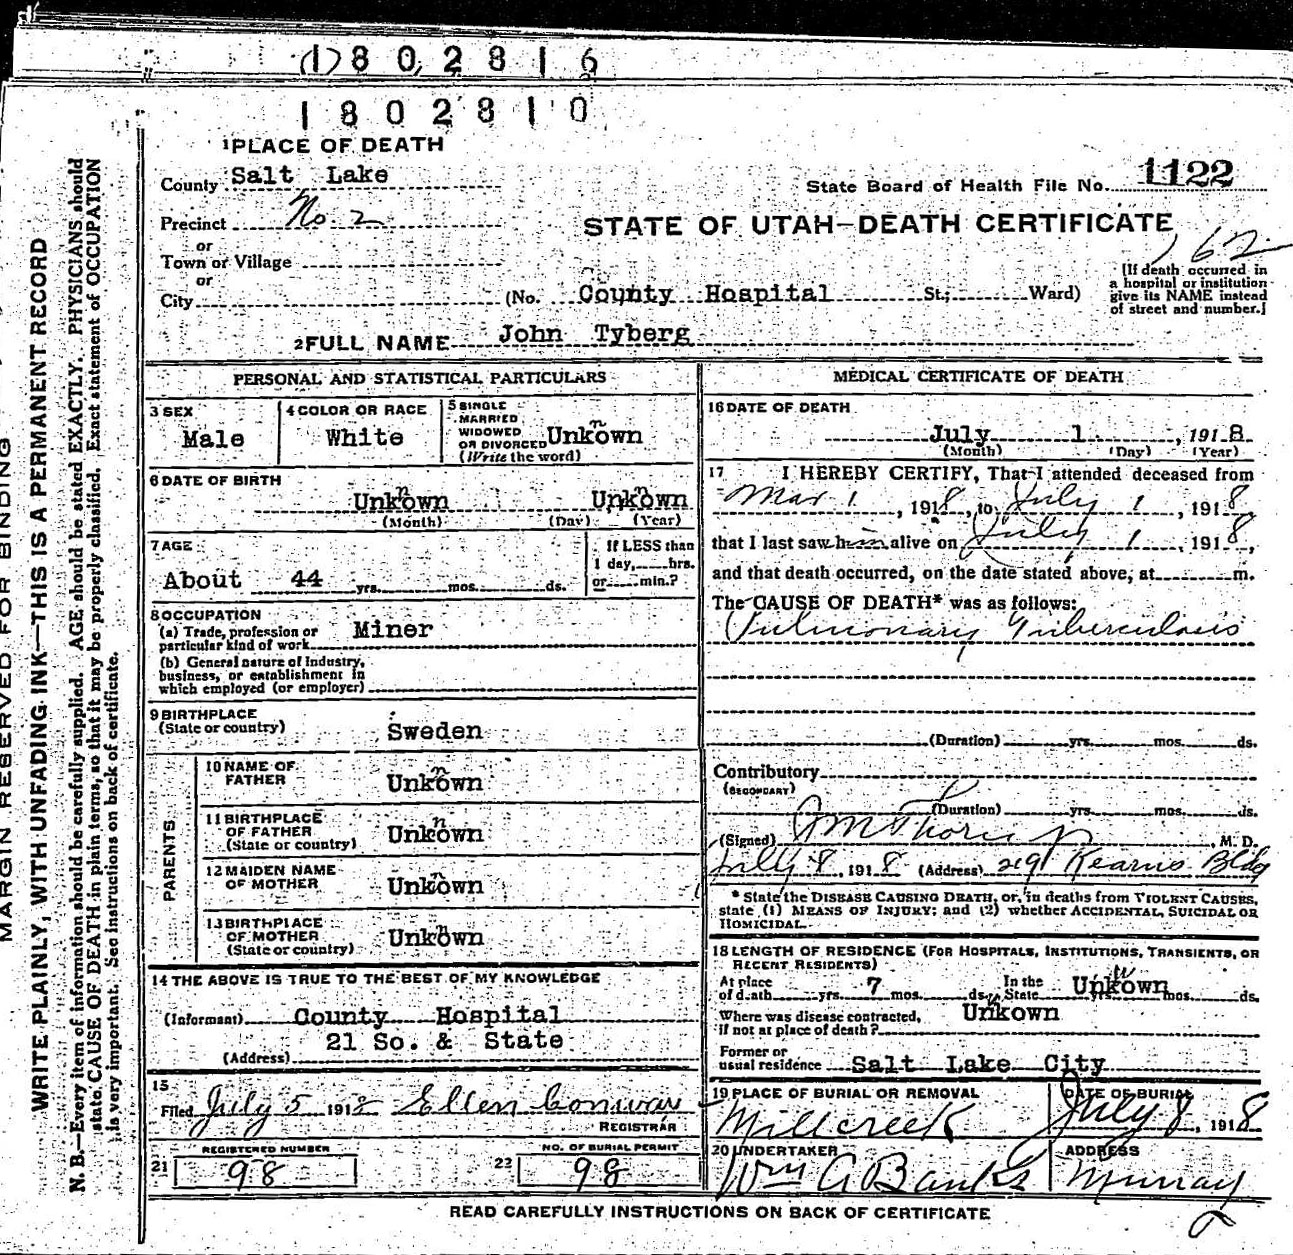 1802816
1802810
1 PLACE OF DEATH
County Salt Lake
State Board of Health File No. 1122
Precinct No. 2
STATE OF UTAH—DEATH CERTIFICATE
162
or
Town or Village
or
City
(No. County Hospital St; Ward)
[If death occurred in
a hospital or institution
give its NAME instead
of street and number.]
2 FULL NAME John Tyberg
PERSONAL AND STATISTICAL PARTICULARS
3 SEX
Male
4 COLOR OR RACE
White
5 SINGLE
MARRIED
WIDOWED
OR DIVORCED Unkown n
(Write the word)
6 DATE OF BIRTH
Unkown n Unkown n
(Month) (Day) (Year)
7 AGE
About 44 yrs. mos. ds.
If LESS than
1 day, hrs.
or min.?
8 OCCUPATION
(a) Trade, profession or
particular kind of work Miner
(b) General nature of Industry,
business, or establishment in
which employed (or employer)
9 BIRTHPLACE
(State or country) Sweden
PARENTS
10 NAME OF
FATHER Unkown n
11 BIRTHPLACE
OF FATHER
(State or country) Unkown n
12 MAIDEN NAME
OF MOTHER Unkown n
13 BIRTHPLACE
OF MOTHER
(State or country) Unkown n
14 THE ABOVE IS TRUE TO THE BEST OF MY KNOWLEDGE
(Informant) County Hospital
21 So. & State
(Address)
15
Filed July 5 1918 Ellen Conway
REGISTRAR
REGISTERED NUMBER
21 98
NO. OF BURIAL PERMIT
22 98
MEDICAL CERTIFICATE OF DEATH
16 DATE OF DEATH
July 1, 1918
(Month) (Day) (Year)
17 I HEREBY CERTIFY, That I attended deceased from
Mar 1, 1918, to July 1, 1918
that I last saw him alive on July 1, 1918,
and that death occurred, on the date stated above, at m.
The CAUSE OF DEATH* was as follows:
Pulmonary Tuberculosis
(Duration) yrs. mos. ds.
Contributory
(SECONDARY)
(Duration) yrs. mos. ds.
(Signed) M. D.
July 8, 1918 (Address) 291 Kearns Bldg
* State the DISEASE CAUSING DEATH, or, in deaths from VIOLENT CAUSES,
state (1) MEANS OF INJURY; and (2) whether ACCIDENTAL, SUICIDAL OR
HOMICIDAL.
18 LENGTH OF RESIDENCE (FOR HOSPITALS, INSTITUTIONS, TRANSIENTS, OR
RECENT RESIDENTS)
At place
of death yrs. 7 mos. ds. In the State Unkown n yrs. mos. ds.
Where was disease contracted,
if not at place of death? Unkown n
Former or
usual residence Salt Lake City
19 PLACE OF BURIAL OR REMOVAL
Millcreek
DATE OF BURIAL
July 8, 1918
20 UNDERTAKER
Wm A Banks
ADDRESS
Murray
READ CAREFULLY INSTRUCTIONS ON BACK OF CERTIFICATE
MARGIN RESERVED FOR BINDING
WRITE PLAINLY, WITH UNFADING INK—THIS IS A PERMANENT RECORD
N. B.—Every item of information should be carefully supplied. AGE should be stated EXACTLY. PHYSICIANS should
state CAUSE OF DEATH in plain terms, so that it may be properly classified. Exact statement of OCCUPATION
is very important. See instructions on back of certificate.